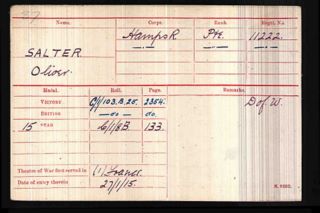 Name. Corps. Rank. Regtl. No.
SALTER. Hamps R Pte. 11222.
Oliver.
Medal. Roll. Page. Remarks.
VICTORY C/1/103.B.25. 2354. D of W.
BRITISH —do— do.
15 STAR C/1/8B. 133.
Theatre of War first served in (1) France.
Date of entry therein 27/1/15.